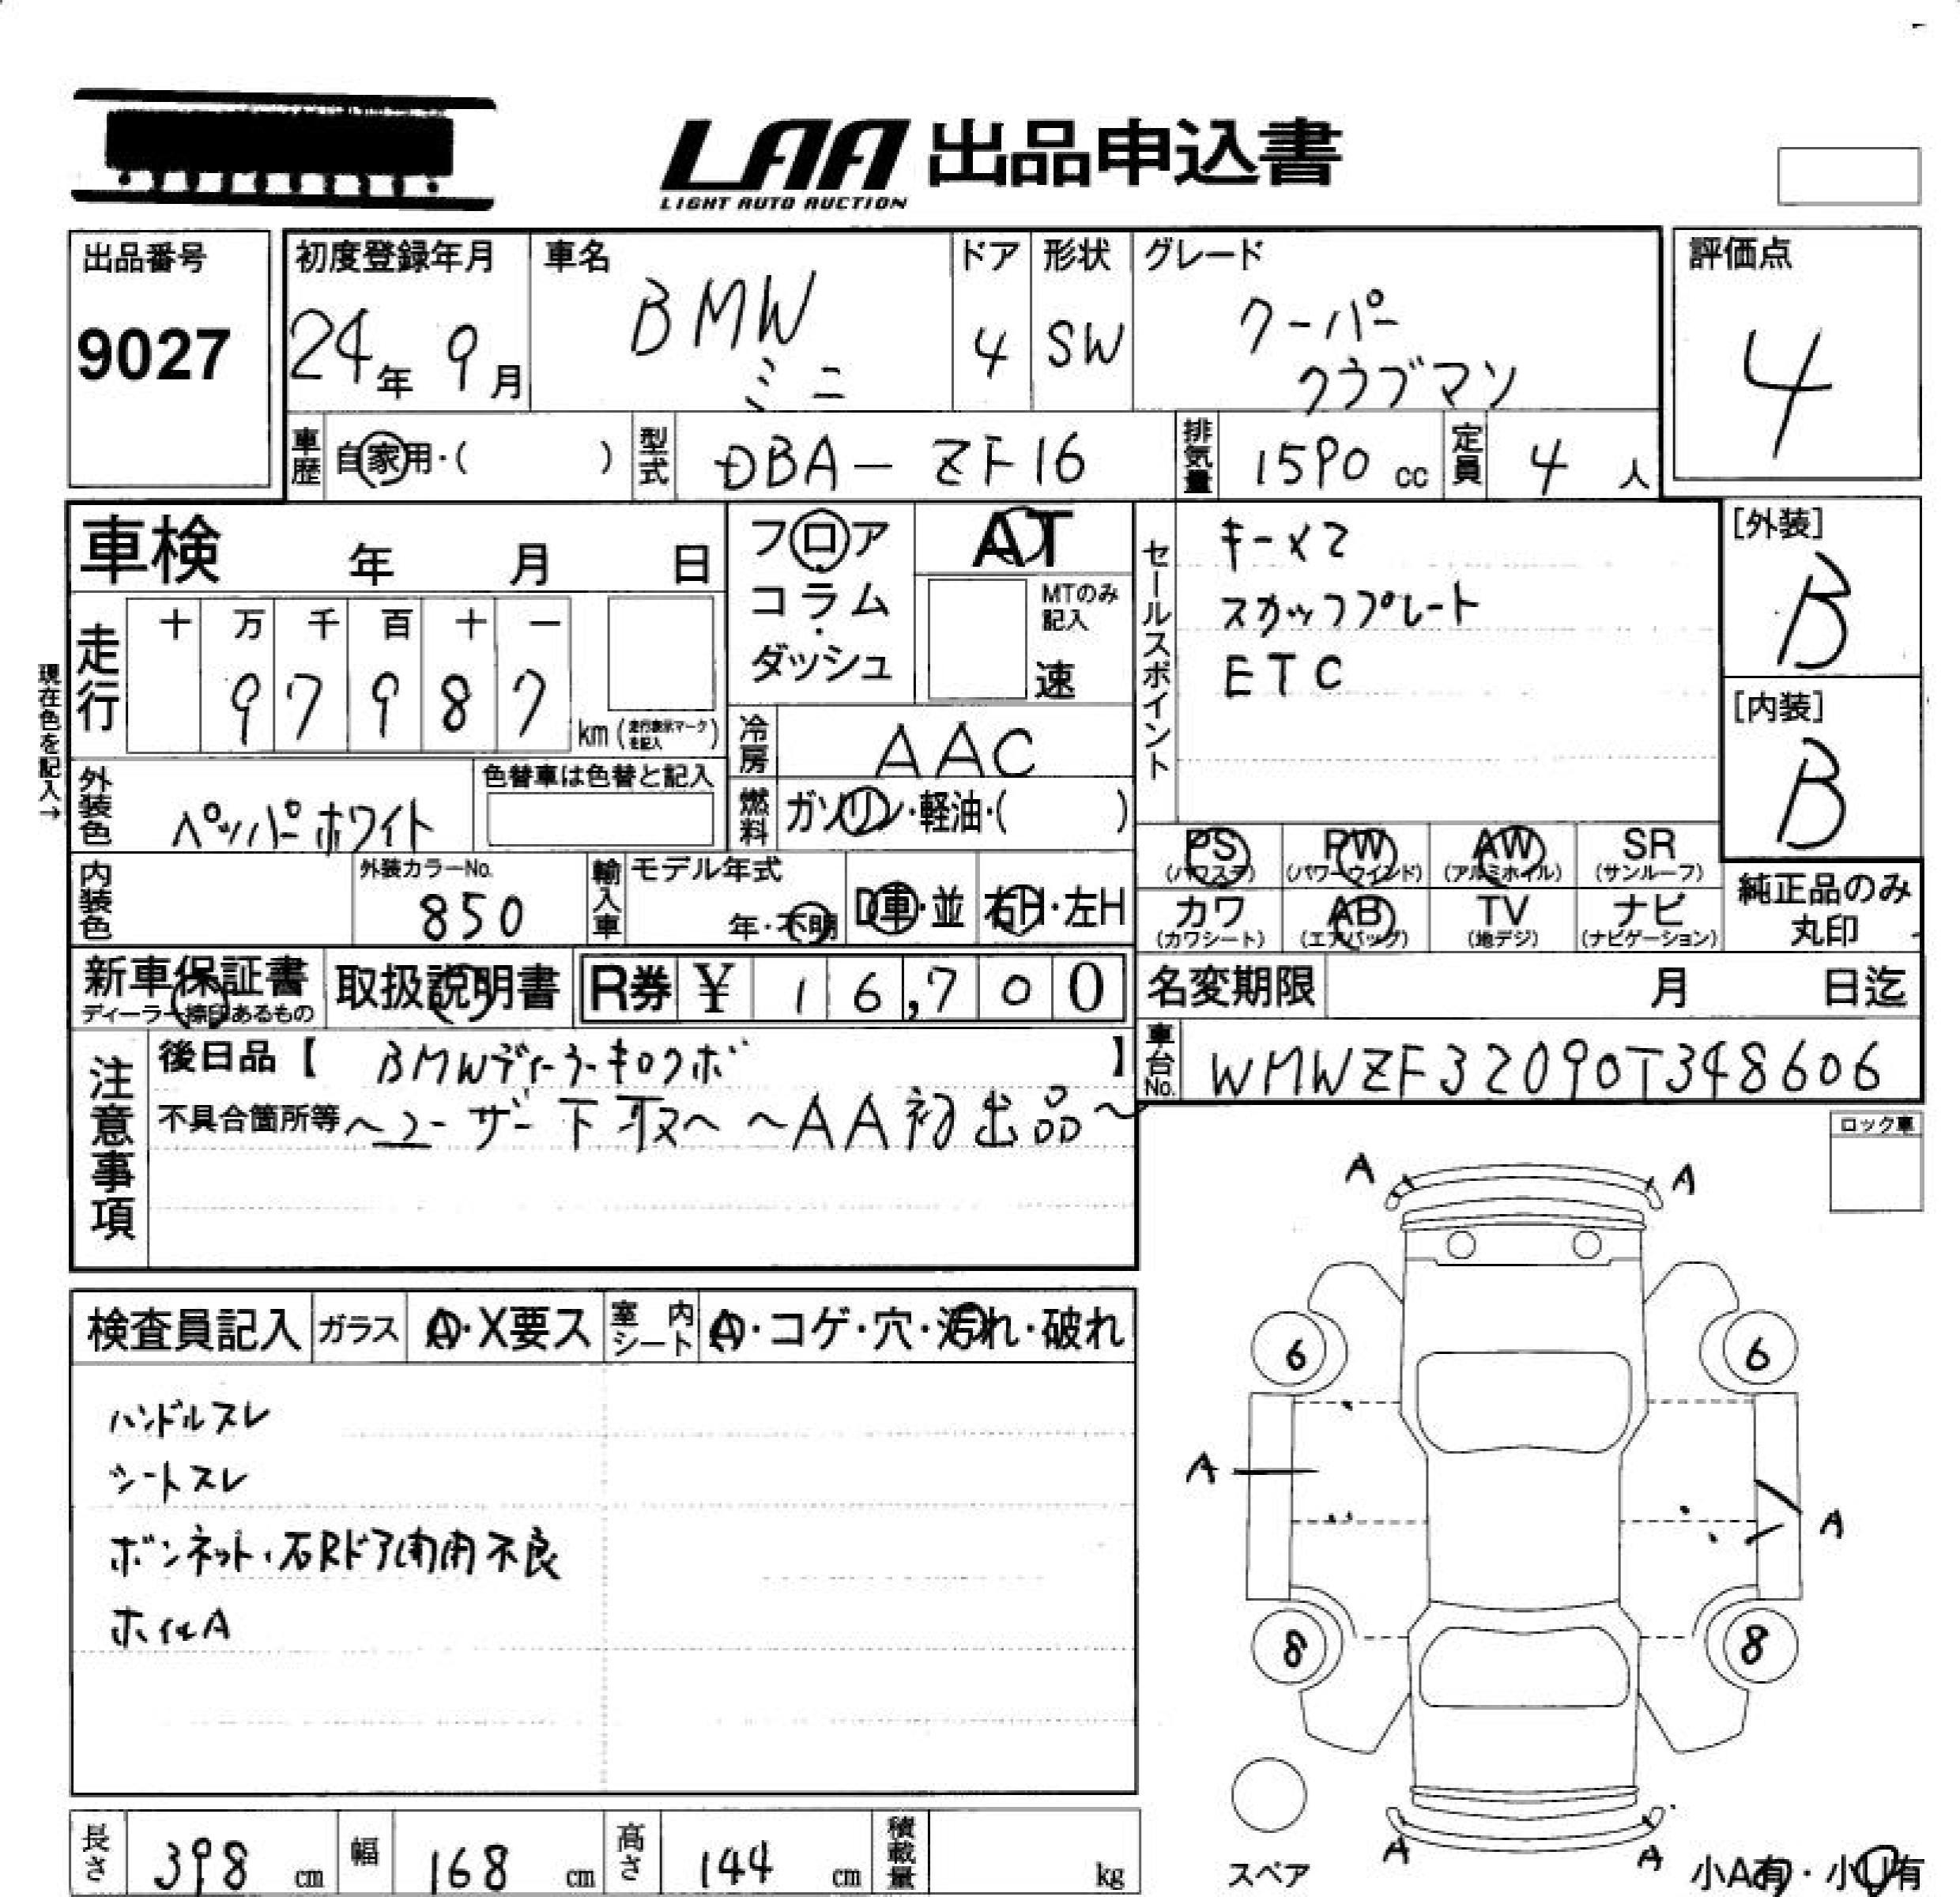 LAA 出品申込書
LIGHT AUTO AUCTION
出品番号
9027
初度登録年月
24年 9月
車名
BMW
ミニ
ドア
4
形状
SW
グレード
クーパー
クラブマン
評価点
4
車歴 自家用・( )
型式 DBA-ZF16
排気量 1590 cc
定員 4 人
車検 年 月 日
走行 十 万 千 百 十 一
9 7 9 8 7 km (走行表示マークを記入)
現在色を記入→
外装色 ペッパーホワイト
色替車は色替と記入
内装色
外装カラーNo.
850
フロア・コラム・ダッシュ
AT
MTのみ記入
速
冷房 AAC
燃料 ガソリン・軽油・( )
輸入車 モデル年式
年・不明
D車・並
右H・左H
セールスポイント
キーX2
スカッフプレート
ETC
[外装]
B
[内装]
B
PS (パワステ) PW (パワーウインド) AW (アルミホイル) SR (サンルーフ)
カワ (カワシート) AB (エアバッグ) TV (地デジ) ナビ (ナビゲーション)
純正品のみ
丸印
新車保証書
ディーラー捺印あるもの
取扱説明書
R券 ¥ 16,700
名変期限 月 日迄
車台No. WMWZF32090T348606
注意事項
後日品【 BMWディーラーキロクボ 】
不具合箇所等 〜ユーザー下取〜 〜AA初出品〜
ロック車
検査員記入 ガラス A・X要ス 室内シート A・コゲ・穴・汚れ・破れ
ハンドルスレ
シートスレ
ボンネット・右Rドア開閉不良
ホイルA
A A
6 6
A
A
8 8
A A
スペア
小A有・小U有
長さ 398 cm 幅 168 cm 高さ 144 cm 積載量 kg